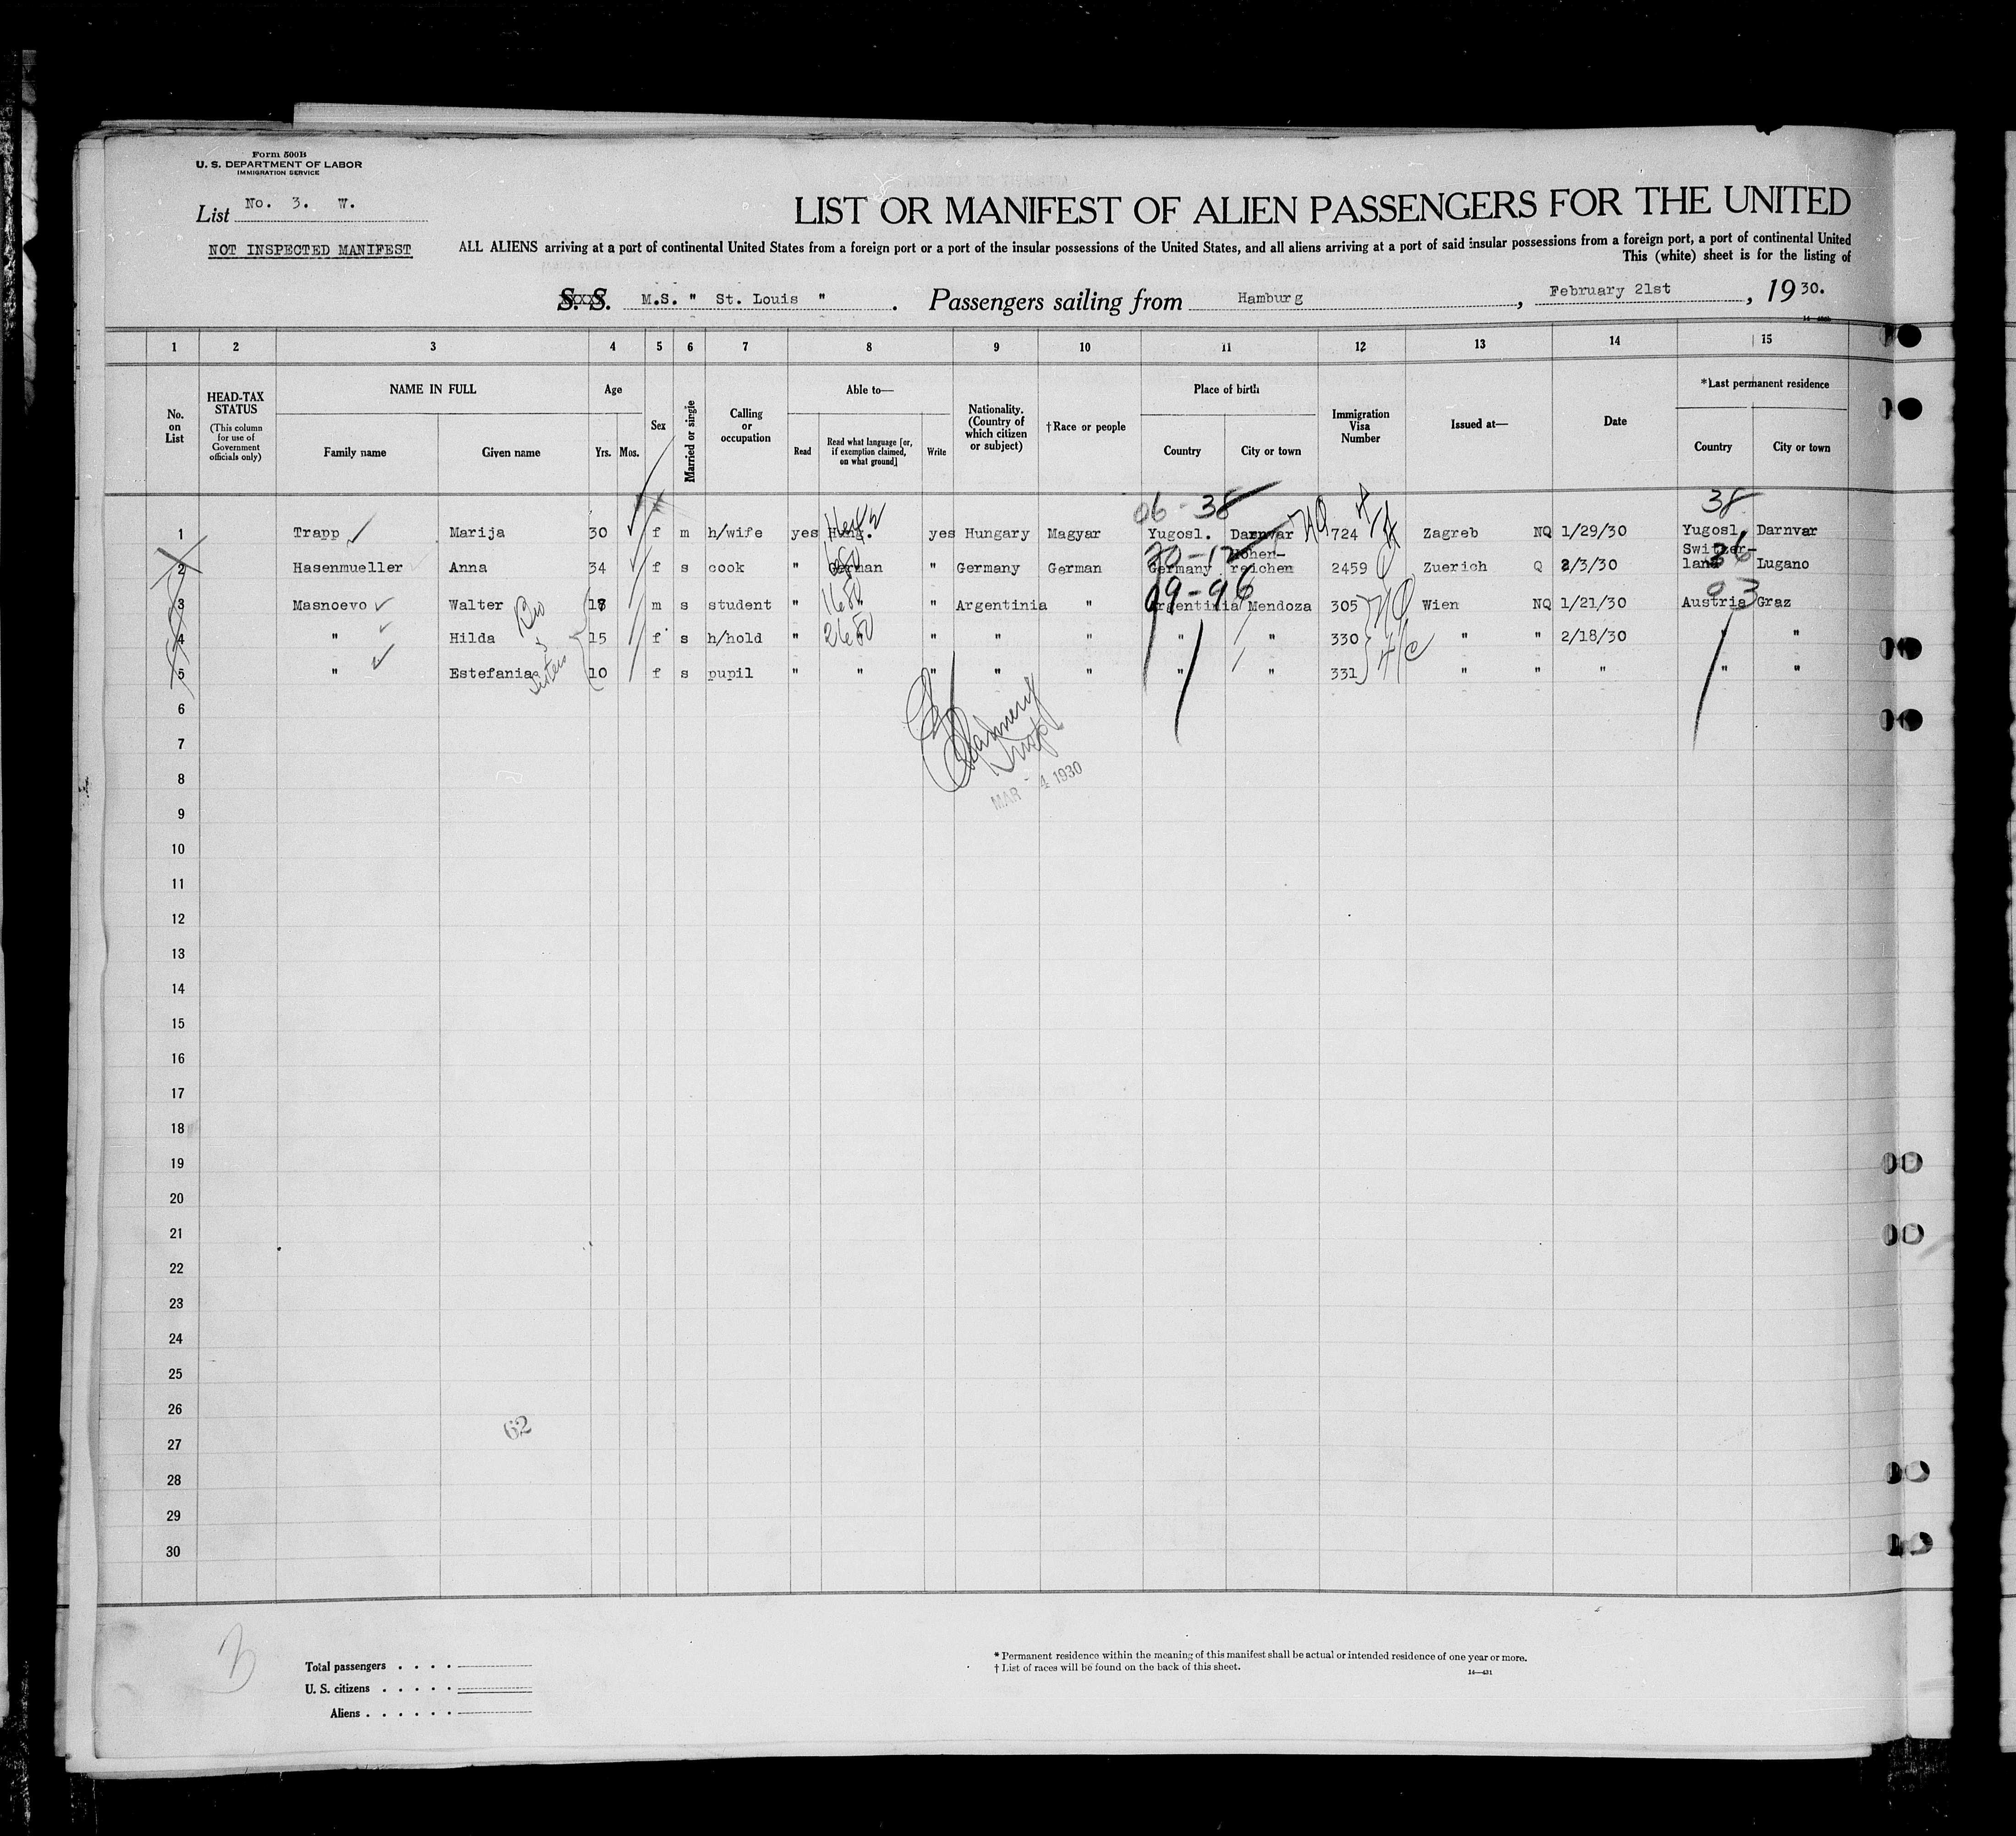 Form 500B
U. S. DEPARTMENT OF LABOR
IMMIGRATION SERVICE
List No. 3. W.
NOT INSPECTED MANIFEST
LIST OR MANIFEST OF ALIEN PASSENGERS FOR THE UNITED
ALL ALIENS arriving at a port of continental United States from a foreign port or a port of the insular possessions of the United States, and all aliens arriving at a port of said insular possessions from a foreign port, a port of continental United
This (white) sheet is for the listing of
S. S. M.S. " St. Louis " . Passengers sailing from Hamburg , February 21st , 19 30.
1 2 3 4 5 6 7 8 9 10 11 12 13 14 15
No. on List
HEAD-TAX STATUS
(This column for use of Government officials only)
NAME IN FULL
Family name Given name
Age
Yrs. Mos.
Sex
Married or single
Calling or occupation
Able to—
Read
Read what language [or, if exemption claimed, on what ground]
Write
Nationality. (Country of which citizen or subject)
†Race or people
Place of birth
Country City or town
Immigration Visa Number
Issued at—
Date
*Last permanent residence
Country City or town
06-38 38
1 Trapp Marija 30 f m h/wife yes Hung. yes Hungary Magyar Yugosl. Darnvar 724 Zagreb NQ 1/29/30 Yugosl. Darnvar
2 Hasenmueller Anna 34 f s cook " German " Germany German Germany Hohen-reichen 2459 Zuerich Q 2/3/30 Switzer-land Lugano
3 Masnoevo Walter 18 m s student " " Argentinia " Argentinia Mendoza 305 Wien NQ 1/21/30 Austria Graz
4 " Hilda 15 f s h/hold " " " " " " 330 " " 2/18/30 " "
5 " Estefania 10 f s pupil " " " " " " " 331 " " " " "
Sisters
MAR - 4 1930
6
7
8
9
10
11
12
13
14
15
16
17
18
19
20
21
22
23
24
25
26
27
28
29
30
62
3
Total passengers . . . .
U. S. citizens . . . . .
Aliens . . . . . .
* Permanent residence within the meaning of this manifest shall be actual or intended residence of one year or more.
† List of races will be found on the back of this sheet.
14—431